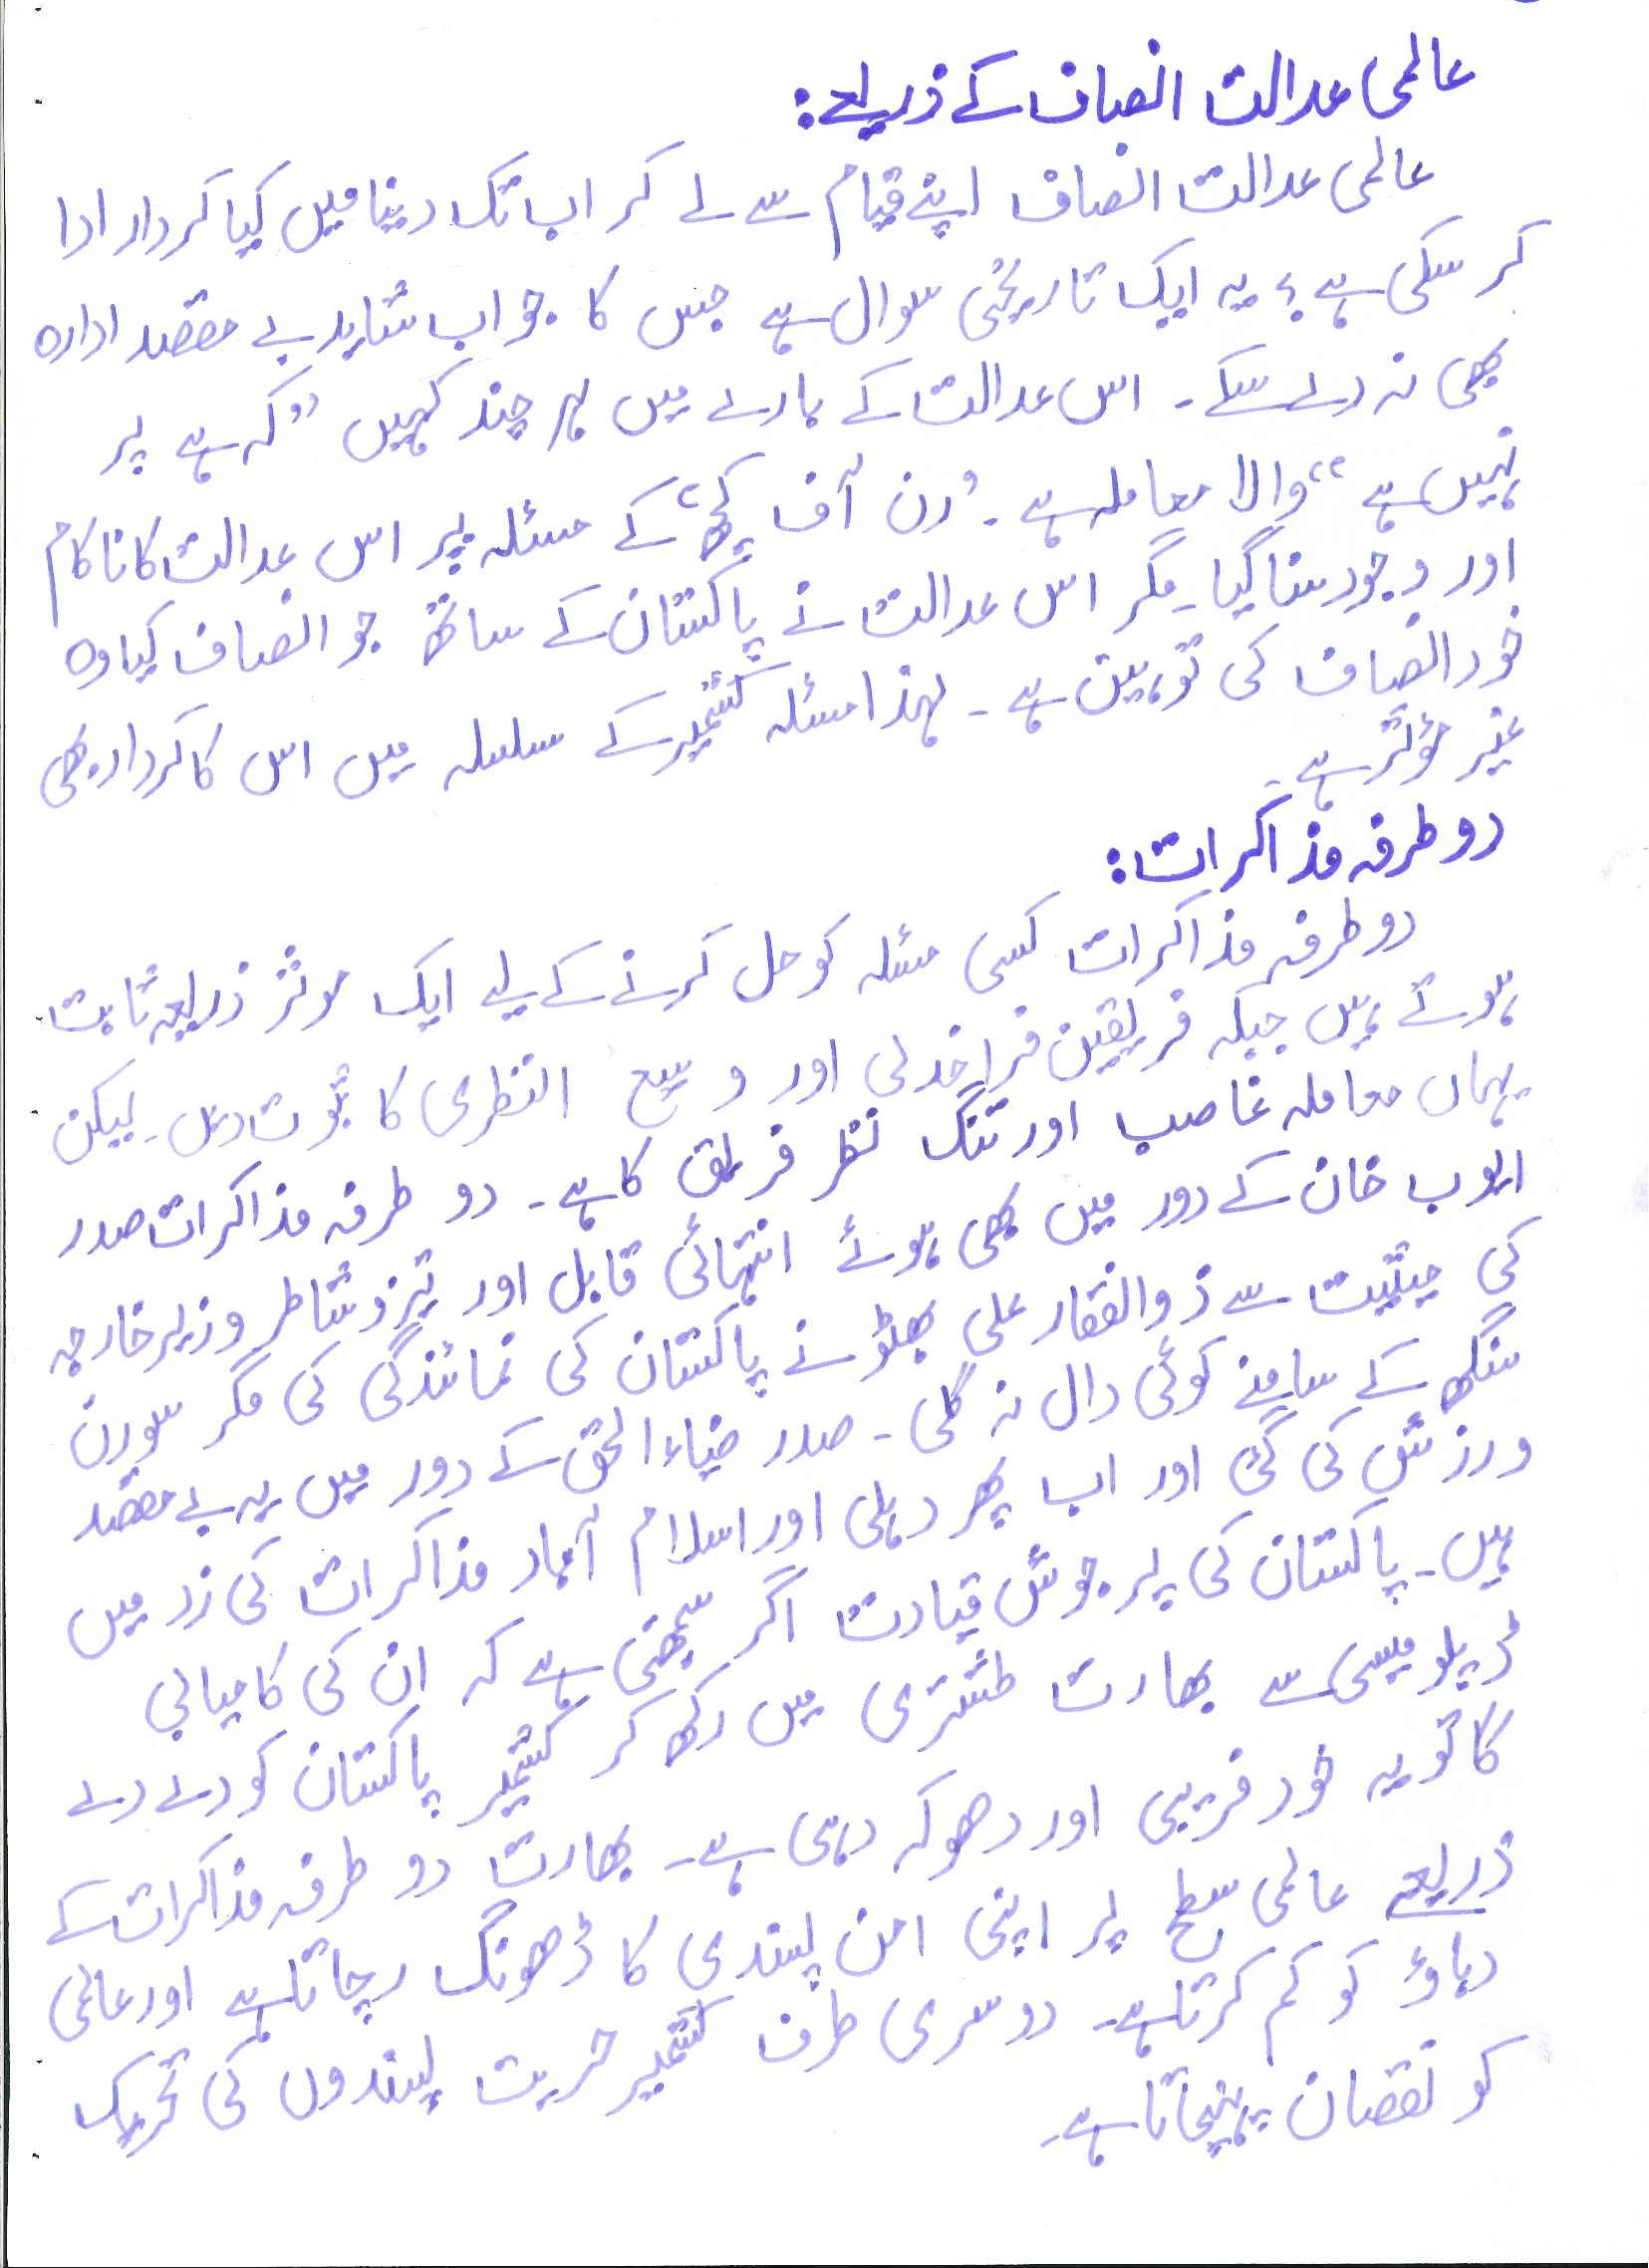 عالمی عدالت انصاف کے ذریعے:
عالمی عدالت انصاف اپنے قیام سے لے کر اب تک دینا میں کیا کردار ادا
کر سکی ہے؟ یہ ایک تاریخی سوال ہے جس کا جواب شاید بے مقصد ادارہ
بھی نہ دے سکے۔ اس عدالت کے بارے میں ہر چند کہیں "کہ ہے پر
نہیں ہے" والا معاملہ ہے۔ "رن آف کچھ" کے مسئلہ پر اس عدالت کا ناکام
اور وجود سنا گیا۔ مگر اس عدالت نے پاکستان کے ساتھ جو انصاف کیا وہ
خود انصاف کی توہین ہے۔ لہذا مسئلہ کشمیر کے سلسلہ میں اس کا کردار بھی
غیر مؤثر ہے۔
دو طرفہ مذاکرات:
دو طرفہ مذاکرات کسی مسئلہ کو حل کرنے کے لیے ایک موثر ذریعہ ثابت
ہوتے ہیں جبکہ فریقین فراخدلی اور وسیع النظری کا ثبوت دیں۔ لیکن
یہاں معاملہ غاصب اور تنگ نظر فریق کا ہے۔ دو طرفہ مذاکرات صدر
ایوب خان کے دور میں بھی ہوئے انتہائی قابل اور تیز و شاطر وزیر خارجہ
کی حیثیت سے ذوالفقار علی بھٹو نے پاکستان کی نمائندگی کی مگر سورن
سنگھ کے سامنے کوئی دال نہ گلی۔ صدر ضیاء الحق کے دور میں یہ بے مقصد
ورزش کی گئی اور اب پھر دہلی اور اسلام آباد مذاکرات کی زد میں
ہیں۔ پاکستان کی پر جوش قیادت اگر سمجھتی ہے کہ ان کی کامیابی
ڈپلومیسی سے بھارت طشتری میں رکھ کر کشمیر پاکستان کو دے دے
گا تو یہ خود فریبی اور دھوکہ دہی ہے۔ بھارت دو طرفہ مذاکرات کے
ذریعے عالمی سطح پر اپنی امن پسندی کا ڈھونگ رچاتا ہے اور عالمی
دباؤ کو کم کرتا ہے۔ دوسری طرف کشمیر حریت پسندوں کی تحریک
کو نقصان پہنچاتا ہے۔